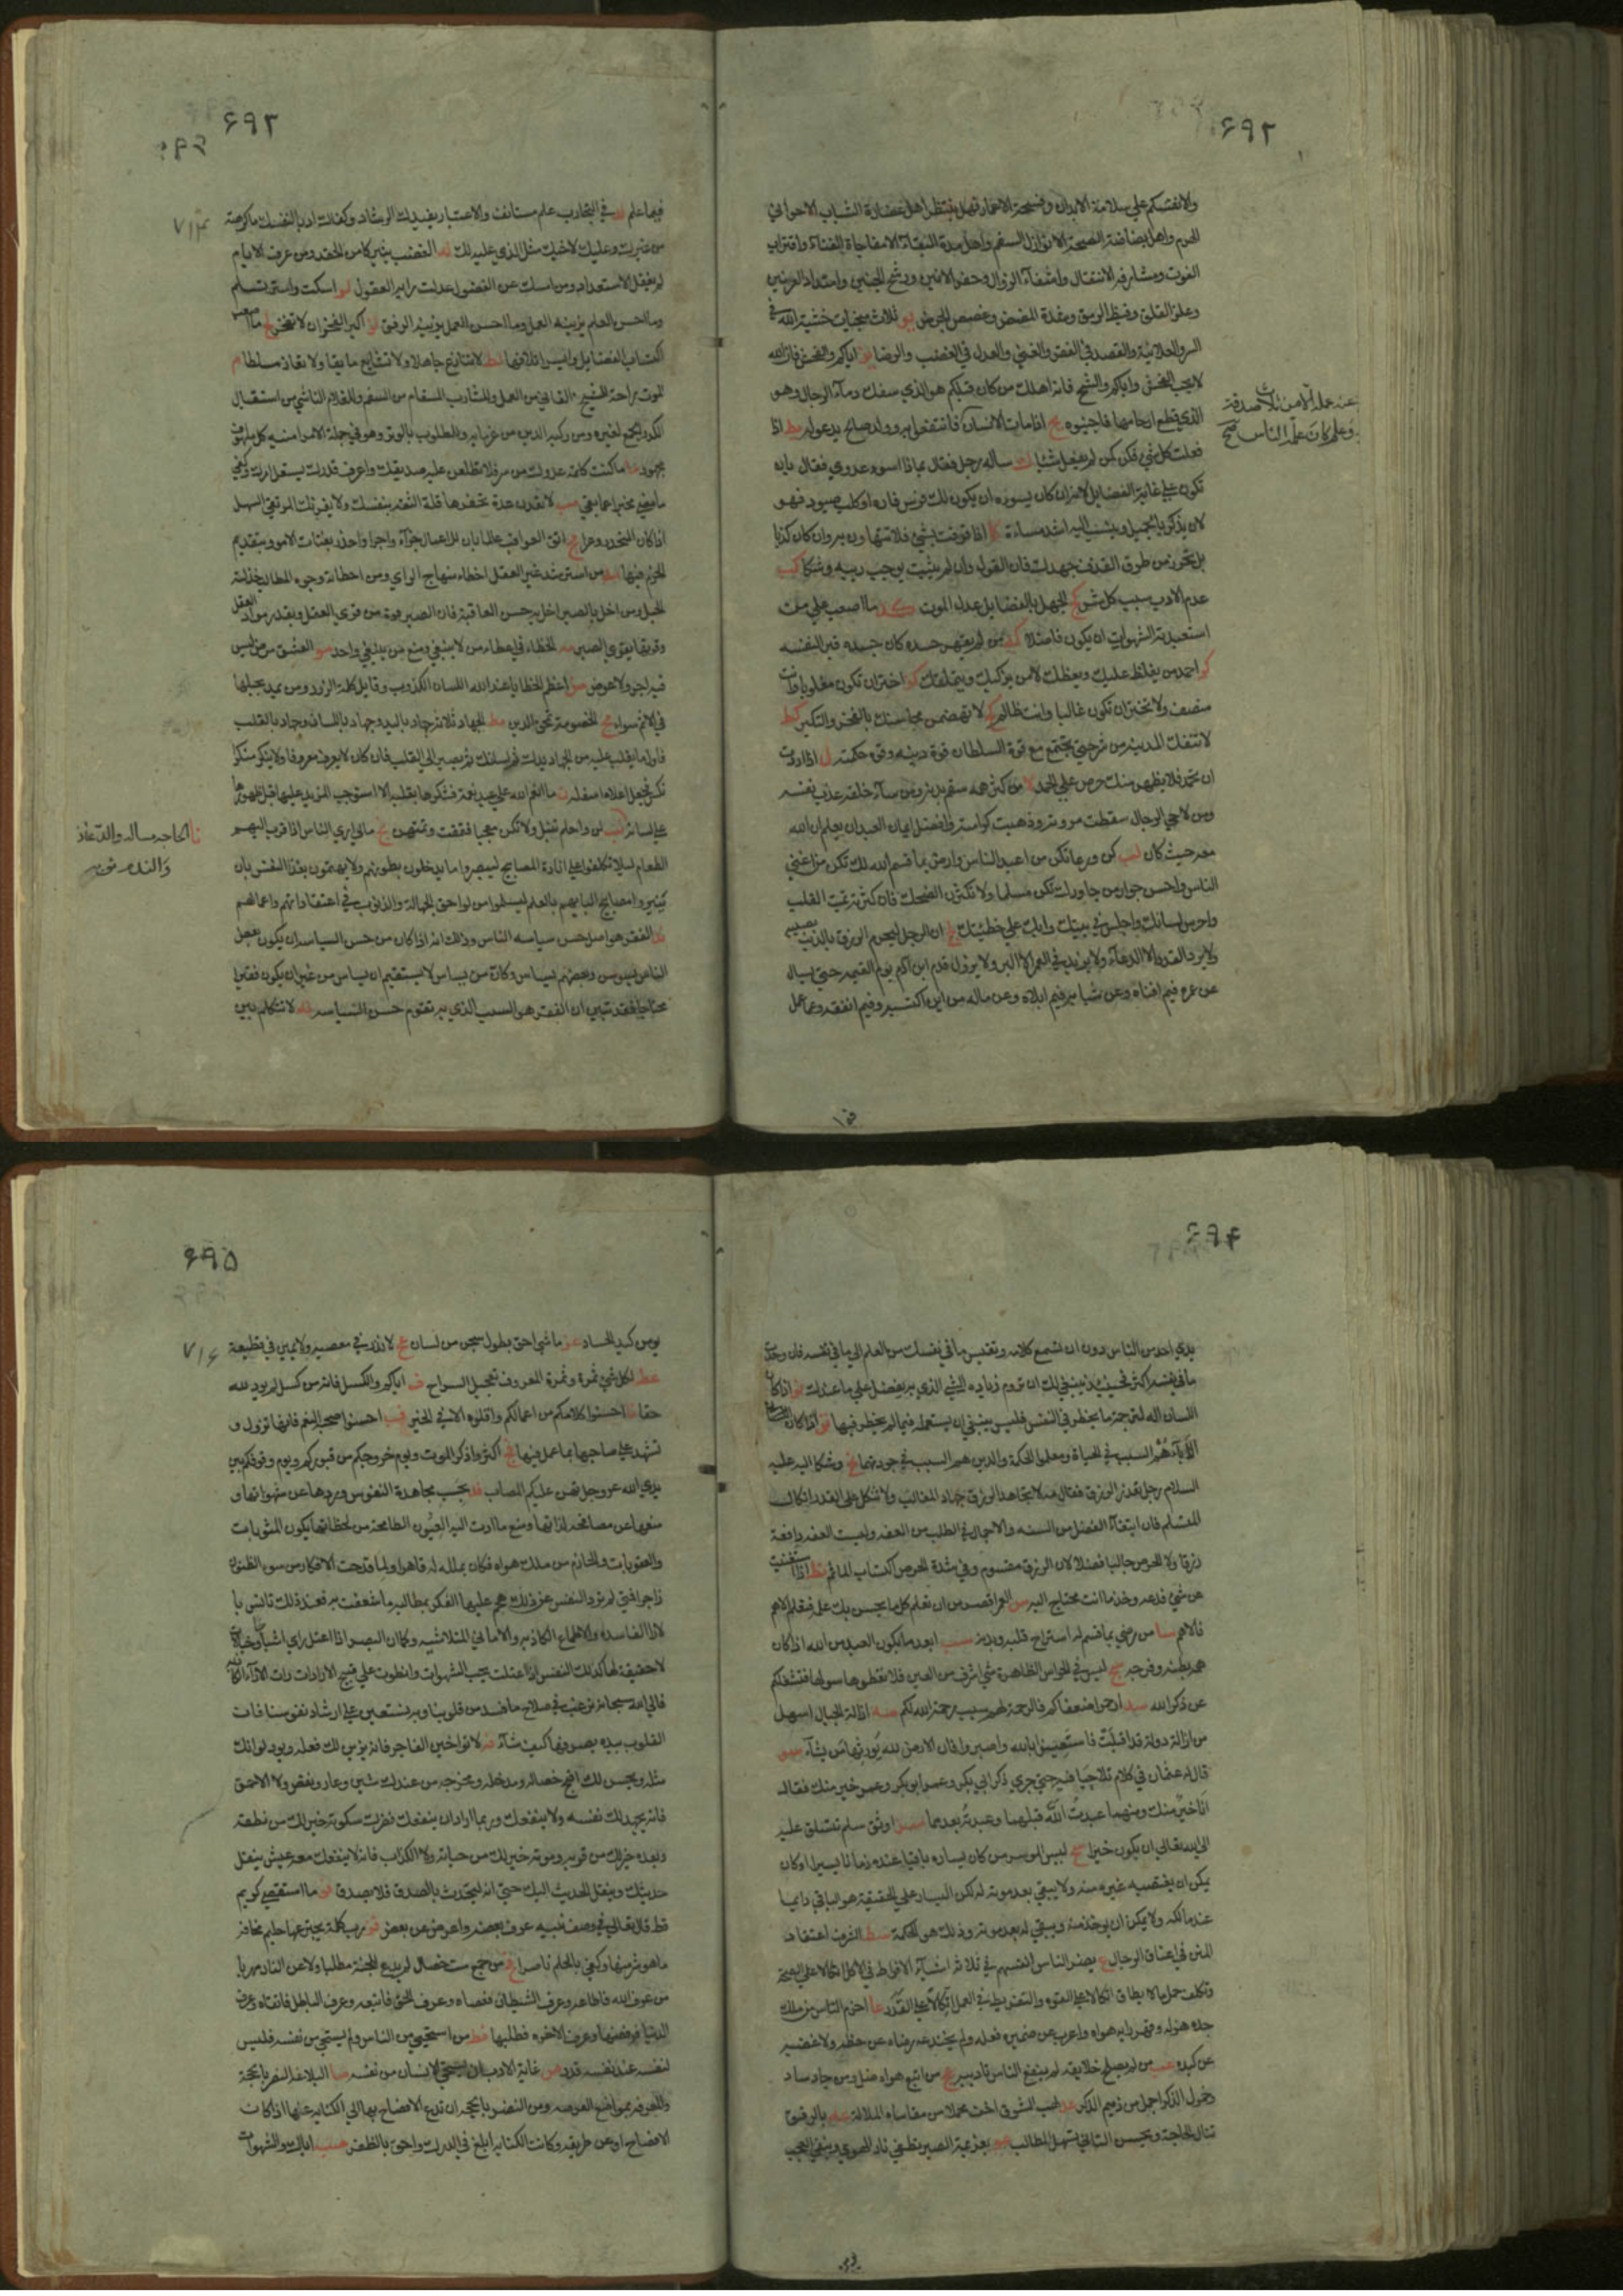 ۶۹۲
ولانفسكم على سلامة الابدان وفسحة الاعمار فهل ينتظر اهل غضارة الشباب الا حوانى
الهرم واهل بضاضة الصحة الا نوازل السقم واهل مدة البقاء الا مفاجاة الفناء واقتراب
الفوت ومشارفة الانتقال واشفاء الزوال وحفز الانين ورشح الجبين وامتداد العرنين
وعلز القلق وفيظ الرمق وشدة المضض وغصص الجرض يو ثلاث منجيات خشية الله في
السر والعلانية والقصد في الفقر والغنى والعدل في الغضب والرضا يز اياكم والفحش فان الله
لا يحب الفحش واياكم والشح فانه اهلك من كان قبلكم هو الذي سفك دماء الرجال وهو
الذي قطع ارحامها فاجتنبوه يح اذا مات الانسان انقطع
عنه عمله الا من ثلاث صدقة
وعلم كان علمه الناس صح
فانتفعوا به وولد صالح يدعو له يط اذا
فعلت كل شيء فكن كمن لم يفعل شيئا ك ساله رجل فقال بماذا اسوء عدوي فقال بان
تكون على غاية الفضايل لانه ان كان يسوءه ان يكون لك فرس فاره او كلب صيود فهو
لان تذكر بالجميل وينسب اليك اشد مساءة كا اذا قرفت بشيء فلا تتهاون به وان كان كذبا
بل تحرز من طرق القذف جهدك فان القول وان لم يثبت يوجب ريبة وشكا كب
عدم الادب سبب كل شر كج الجهل بالفضايل عدل الموت كد ما اصعب على من
استعبدته الشهوات ان يكون فاضلا كه من لم يقهر حسده كان جسده قبرا لنفسه
كو احمد من يغلظ عليك ويعظك لا من يزكيك ويتملقك كز اختر ان تكون مغلوبا وانت
منصف ولا تختر ان تكون غالبا وانت ظالم كح لا تهضمن محاسنك بالفخر والتكبر كط
لا تنفك المدينة من شر حتى يجتمع مع قوة السلطان قوة دينه وقوة حكمته ل اذا اردت
ان تحمد فلا يظهر منك حرص على الحمد لا من كثر همه سقم بدنه ومن ساء خلقه عذب نفسه
ومن لاحى الرجال سقطت مروته وذهبت كرامته وافضل ايمان العبد ان يعلم ان الله
معه حيث كان لب كن ورعا تكن من اعبد الناس وارض بما قسم الله لك تكن من اغنى
الناس واحسن جوار من جاورك تكن مسلما ولا تكثرن الضحك فان كثرته تميت القلب
واحرس لسانك واجلس في بيتك وابك على خطيئتك لج ان الرجل ليحرم الرزق بالذنب يصيبه
ولا يرد القدر الا الدعاء ولا يزيد في العمر الا البر ولا يزول قدم ابن آدم يوم القيمة حتى يسال
عن عمره فيم افناه وعن شبابه فيم ابلاه وعن ماله من اين اكتسبه وفيم انفقه وعما عمل
۶۹۳
فيما علم لد في التجارب علم مستانف والاعتبار يفيدك الرشاد وكفاك ادبا لنفسك ما كرهته
من غيرك وعليك لاخيك مثل الذي عليه لك له الغضب يثير كامن الحقد ومن عرف الايام
لم يغفل الاستعداد ومن امسك عن الفضول عدلت رايه العقول لو اسكت واستر تسلم
وما احسن العلم يزينه العمل وما احسن العمل يزينه الرفق لز اكبر الفخر ان لا تفخر لح ما اصعب
اكتساب الفضايل وايسر اتلافها لط لا تنازع جاهلا ولا تشايع مايقا ولا تعاد مسلطا م
الموت راحة للشيخ الفاني من العمل وللشاب السقام من السقم وللغلام الناشي من استقبال
الكدر والجمع لغيره ومن ركبه الدين من غرمايه وللمطلوب بالوتر وهو في جملة الامر امنية كل ملهوف
مجهود ما ما كنت كاتمه عدوك من سر فلا تطلعن عليه صديقك واعرف قدرك يستعل امرك وكفى
ما مضى مخبرا عما بقي مب لا تعدن عدة تحقرها قلة الثقة بنفسك ولا يغرنك المرتقى السهل
اذا كان المنحدر وعرا مج اتق العواقب عالما بان للاعمال جزاء واجرا واحذر تبعات الامور بتقديم
الحزم فيها مد من استرشد غير العقل اخطاء منهاج الراي ومن اخطاته وجوه المطالب خذلته
الحيل ومن اخل بالصبر اخل به حسن العاقبة فان الصبر قوة من قوى العقل وبقدر مواد العقل
وقوتها يقوى الصبر مه الخطاء في اعطاء من لا ينبغي ومنع من ينبغي واحد مو العشق مرض ليس
فيه اجر ولا عوض مز اعظم الخطايا عند الله اللسان الكذوب وقايل كلمة الزور ومن يمد بحبلها
في الاثم سواء مح الخصومة تمحق الدين مط الجهاد ثلاثة جهاد باليد وجهاد باللسان وجهاد بالقلب
فاول ما يغلب عليه من الجهاد يدك ثم لسانك ثم يصير الى القلب فان كان لا يعرف معروفا ولا ينكر منكرا
نكس فجعل اعلاه اسفله ن ما انعم الله على عبد نعمة فشكرها بقلبه الا استوجب المزيد عليها قبل ظهورها
على لسانه
نا الحاجة مسالة والدعاء زيادة
والندم توبة
نب لن واحلم تنبل ولا تكن معجبا فتمقت وتمتهن نج مالي ارى الناس اذا قرب اليهم
الطعام ليلا تكلفوا انارة المصابيح ليبصروا ما يدخلون بطونهم ولا يهتمون بغذاء النفس بان
ينيروا مصابيح البابهم بالعلم ليسلموا من لواحق الجهالة والذنوب في اعتقاداتهم واعمالهم
ند الفقر هو اصل حسن سياسة الناس وذلك انه اذا كان من حسن السياسة ان يكون بعض
الناس يسوس وبعضهم يساس وكان من يساس لا يستقيم ان يساس من غير ان يكون فقيرا
محتاجا فقد تبين ان الفقر هو السبب الذي به تقوم حسن السياسة نه لا تتكلم بين
۶۹۴
يدي احد من الناس دون ان تسمع كلامه وتقيس ما في نفسك من العلم الى ما في نفسه فان وجدت
ما في نفسه اكثر فحينئذ ينبغي لك ان تروم زيادة الشيء الذي به يفضل على ما عندك نو اذا كان
اللسان آلة لترجمة ما يخطر في النفس فليس ينبغي ان يستعمله فيما لم يخطر فيها نز اذا كان
الآباء هم السبب في الحياة ومعلموا الحكمة والدين هم السبب في جودتها نح وشكا اليه عليه
السلام رجل تعذر الرزق فقال مه لا تجاهد الرزق جهاد المغالب ولا تتكل على القدر اتكال
المستسلم فان ابتغاء الفضل من السنة والاجمال في الطلب من العفة وليست العفة دافعة
رزقا ولا الحرص جالبا فضلا لان الرزق مقسوم وفي شدة الحرص اكتساب الماثم نط اذا استغنيت
عن شيء فدعه وخذ ما انت محتاج اليه س العمر اقصر من ان تعلم كل ما يحسن بك علمه فتعلم الاهم
فالاهم سا من رضي بما قسم له استراح قلبه وبدنه سب ابعد ما يكون العبد من الله اذا كان
همه بطنه وفرجه سج ليس في الحواس الظاهرة شيء اشرف من العين فلا تعطوها سولها فتشغلكم
عن ذكر الله سد ارحموا ضعفاكم فالرحمة لهم سبب رحمة الله لكم سه ازالة الجبال اسهل
من ازالة دولة قد اقبلت فاستعينوا بالله واصبروا فان الارض لله يورثها من يشاء سو
قال له عثمان في كلام تلاحيا فيه حتى جرى ذكر ابي بكر وعمر ابو بكر وعمر خير منك فقال
انا خير منك ومنهما عبدت الله قبلهما وعبدته بعدهما سز اوثق سلم تتسلق عليه
الى الله تعالى ان يكون خيرا سح ليس الموسر من كان يساره باقيا عنده زمانا يسيرا وكان
يمكن ان يغتصبه غيره منه ولا يبقى بعد موته له لكن اليسار على الحقيقة هو الباقي دايما
عند مالكه ولا يمكن ان يوخذ منه ويبقى له بعد موته وذلك هو الحكمة سط الشرف اعتقاد
المنن في اعناق الرجال ع يضر الناس انفسهم في ثلاثة اشياء الافراط في الاكل اتكالا على الصحة
وتكلف حمل ما لا يطاق اتكالا على القوة والتفريط في العمل اتكالا على القدر عا احزم الناس من ملك
جده هزله وقهر رايه هواه واعرب عن ضميره فعله ولم يخدعه رضاه عن حظه ولا غضبه
عن كيده عب من لم يصلح خلايقه لم ينفع الناس تاديبه عج من اتبع هواه ضل ومن جاد ساد
وخمول الذكر اجمل من ذميم الذكر عد لهب الشوق اخف محملا من مقاساة الملالة عه بالرفق
تنال الحاجة وبحسن التاني تسهل المطالب عو عزيمة الصبر تطفي نار الهوى ونفي العجب
۶۹۵
يومن كيد الحساد عز ما شيء احق بطول سجن من لسان عح لا نذر في معصية ولا يمين في قطيعة
عط لكل شيء ثمرة وثمرة المعروف تعجيل السراح ف اياكم والكسل فانه من كسل لم يود لله
حقا فا احسبوا كلامكم من اعمالكم واقلوه الا في الخير فب احسنوا صحبة النعم فانها تزول و
تشهد على صاحبها بما عمل فيها فج اكثروا ذكر الموت ويوم خروجكم من قبوركم ويوم وقوفكم بين
يدي الله عز وجل تهن عليكم المصاب فد بحسب مجاهدة النفوس وردها عن شهواتها و
منعها عن مصافحة لذاتها ومنع ما ادت اليه العيون الطامحة من لحظاتها يكون المثوبات
والعقوبات والحازم من ملك هواه فكان بملكه له قاهرا ولما قدحت الافكار من سوء الظنون
زاجرا فمتى لم ترد النفس عن ذلك هجم عليها الفكر بمطالبة ما شغفت به فعند ذلك تانس با
لآراء الفاسدة والاطماع الكاذبة والاماني المتلاشية وكما ان البصر اذا اعتل راى اشباحا وخيالات
لا حقيقة لها كذلك النفس اذا اعتلت بحب الشهوات وانطوت على قبيح الارادات رات الآراء الكاذبة
فالى الله سبحانه نرغب في صلاح ما فسد من قلوبنا وبه نستعين على ارشاد نفوسنا فان
القلوب بيده يصرفها كيف شاء فه لا تواخين الفاجر فانه يزين لك فعله ويود لو انك
مثله ويحسن لك اقبح خصاله ومدخله ومخرجه من عندك شين وعار ونقص ولا الاحمق
فانه يجهد لك نفسه ولا ينفعك وربما اراد ان ينفعك فضرك سكوته خير لك من نطقه
وبعده خير لك من قربه وموته خير لك من حياته ولا الكذاب فانه لا ينفعك معه عيش ينقل
حديثك وينقل الحديث اليك حتى انه ليحدث بالصدق فلا يصدق فو ما استقصى كريم
قط قال تعالى في وصف نبيه عرف بعضه واعرض عن بعض فز رب كلمة يخترعها حليم مخافة
ما هو شر منها وكفى بالحلم ناصرا فح من جمع ست خصال لم يدع للجنة مطلبا ولا عن النار مهربا
من عرف الله فاطاعه وعرف الشيطان فعصاه وعرف الحق فاتبعه وعرف الباطل فاتقاه وعرف
الدنيا فرفضها وعرف الاخرة فطلبها فط من استحيى من الناس ولم يستحي من نفسه فليس
لنفسه عند نفسه قدر ص غاية الادب ان يستحي الانسان من نفسه صا البلاغة النصر بالحجة
والمعرفة بمواضع الفرصة ومن النصر بالحجة ان تدع الافصاح بها الى الكناية عنها اذا كان
الافصاح اوعر طريقة وكانت الكناية ابلغ في الدرك واحق بالظفر صب اياك والشهوات